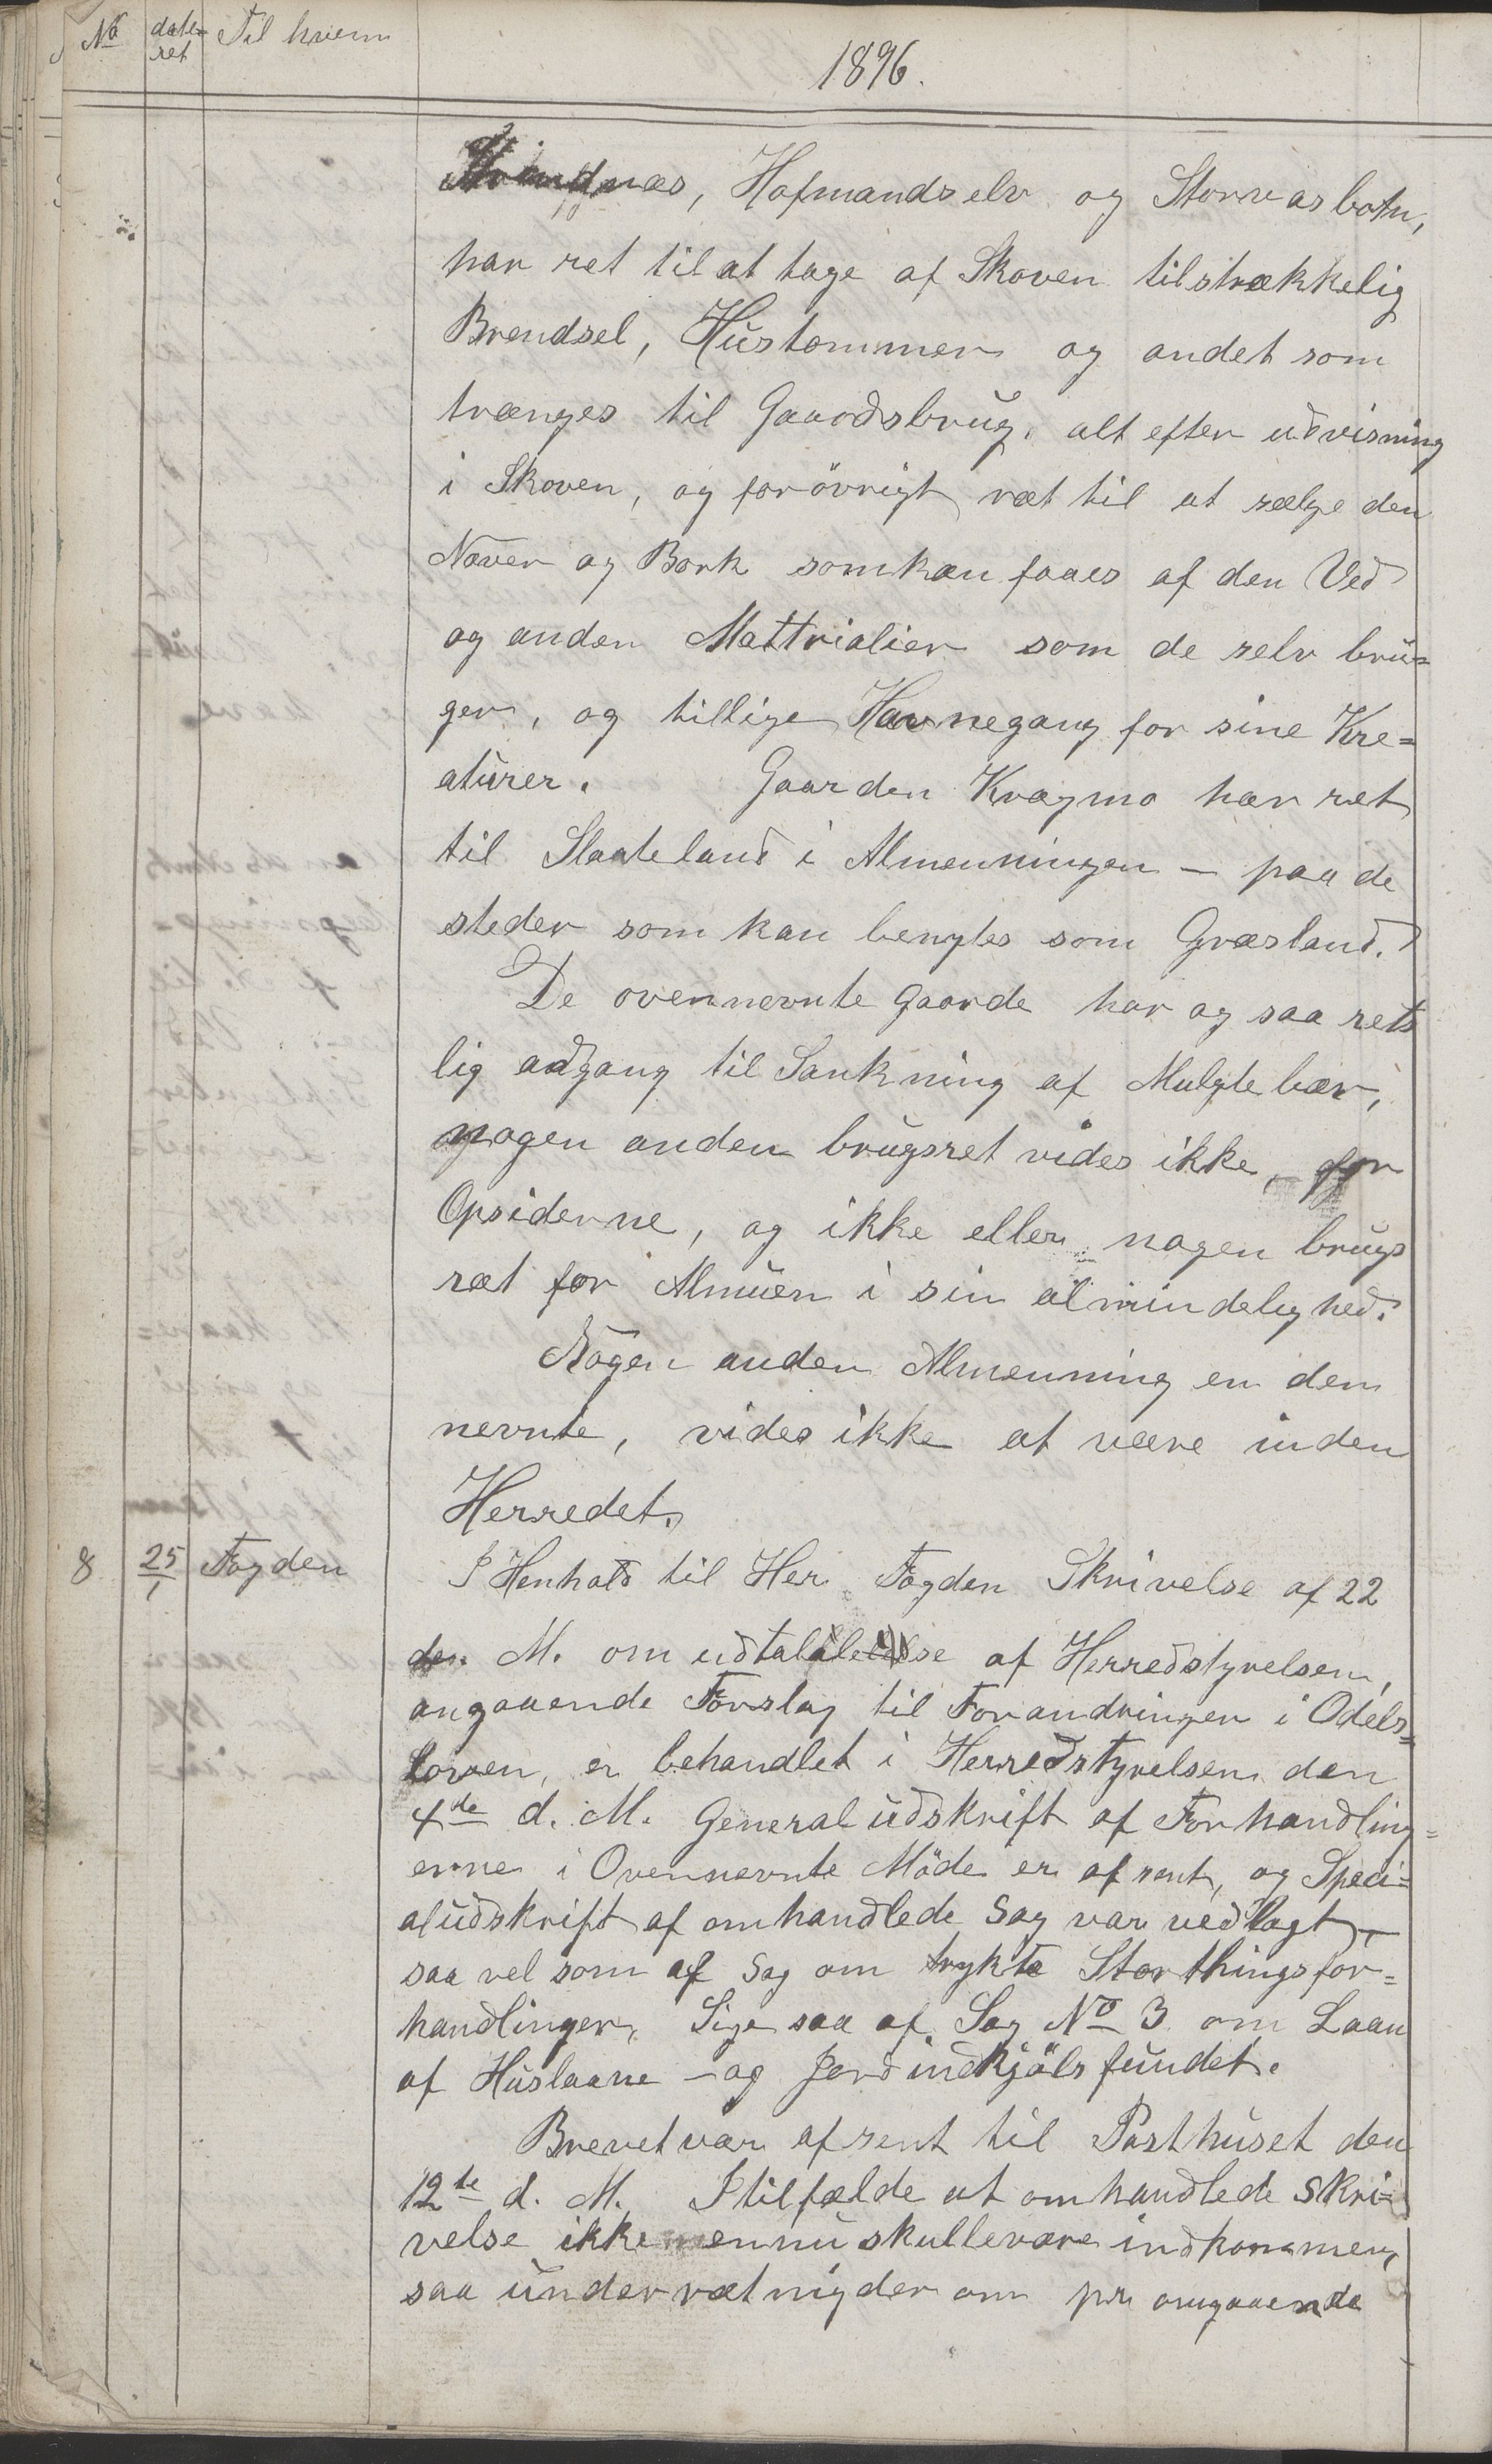 No date= ret Til hvem
1896.
Hofmandselv og Storvasbotn,
har ret til at tage af Skoven tilstrækkelig
Brendsel, Hustommer og andet som
trænges til Gaardsbrug, alt efter udvisning
i Skoven, og forövrigt ræt til at sælge den
Næver og Bark som kan faaes af den Ved
og anden Mattrialier som de selv bru=
ger, og tillige Havnegang for sine Kre=
aturer. Gaarden Krægmo har ret
til Slaateland i Almenningen – paa de
steder som kan benyttes som Græsland.
De ovennevnte Gaarde har og saa rets
lig adgang til Sankning af Multebær,
nogen anden brugsret vides ikke, for
Opsiderne, og ikke eller nogen brugs
ræt for Almuen i sin almindelighed.
Nogen anden Almenning en den
nevnte, vides ikke at være inden
Herredet.
8 25/1 Fogden I Henhold til Her Fogden Skrivelse af 22
den M. om udtalelse af Herredstyrelsen,
angaaende Forslag til Forandringer i Odels=
loven, er behandlet i Herredstyrelsen den
4de d. M. General udskrift af Forhandling=
erne i Ovennevnte Möde er afsent, og Speci=
aludskrift af omhandlede Sag var vedlagt –
saa vel som af Sag om trykte Storthingsfor=
handlinger, Lige saa af Sag No 3 om Laan
af Huslaane – og Jordindkjöbsfundet.
Brevet var afsent til Posthuset den
12te d. M. I tilfælde at omhandlede Skri=
velse ikke ennu skulle være indkommen,
saa underrætnig der om pr omgaaende